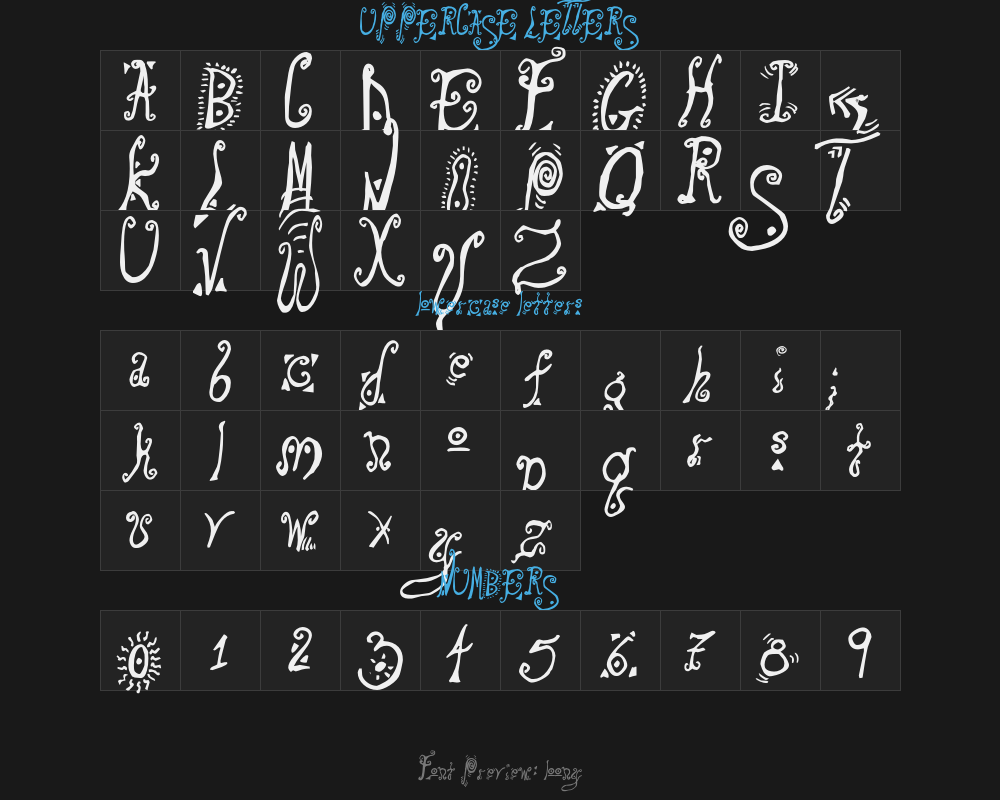 UPPERCASE LETTERS
A B C D E F G H I J
K L M N O P Q R S T
U V W X Y Z
lowercase letters
a b c d e f g h i j
k l m n o p q r s t
u v w x y z
NUMBERS
0 1 2 3 4 5 6 7 8 9
Font Preview: bong